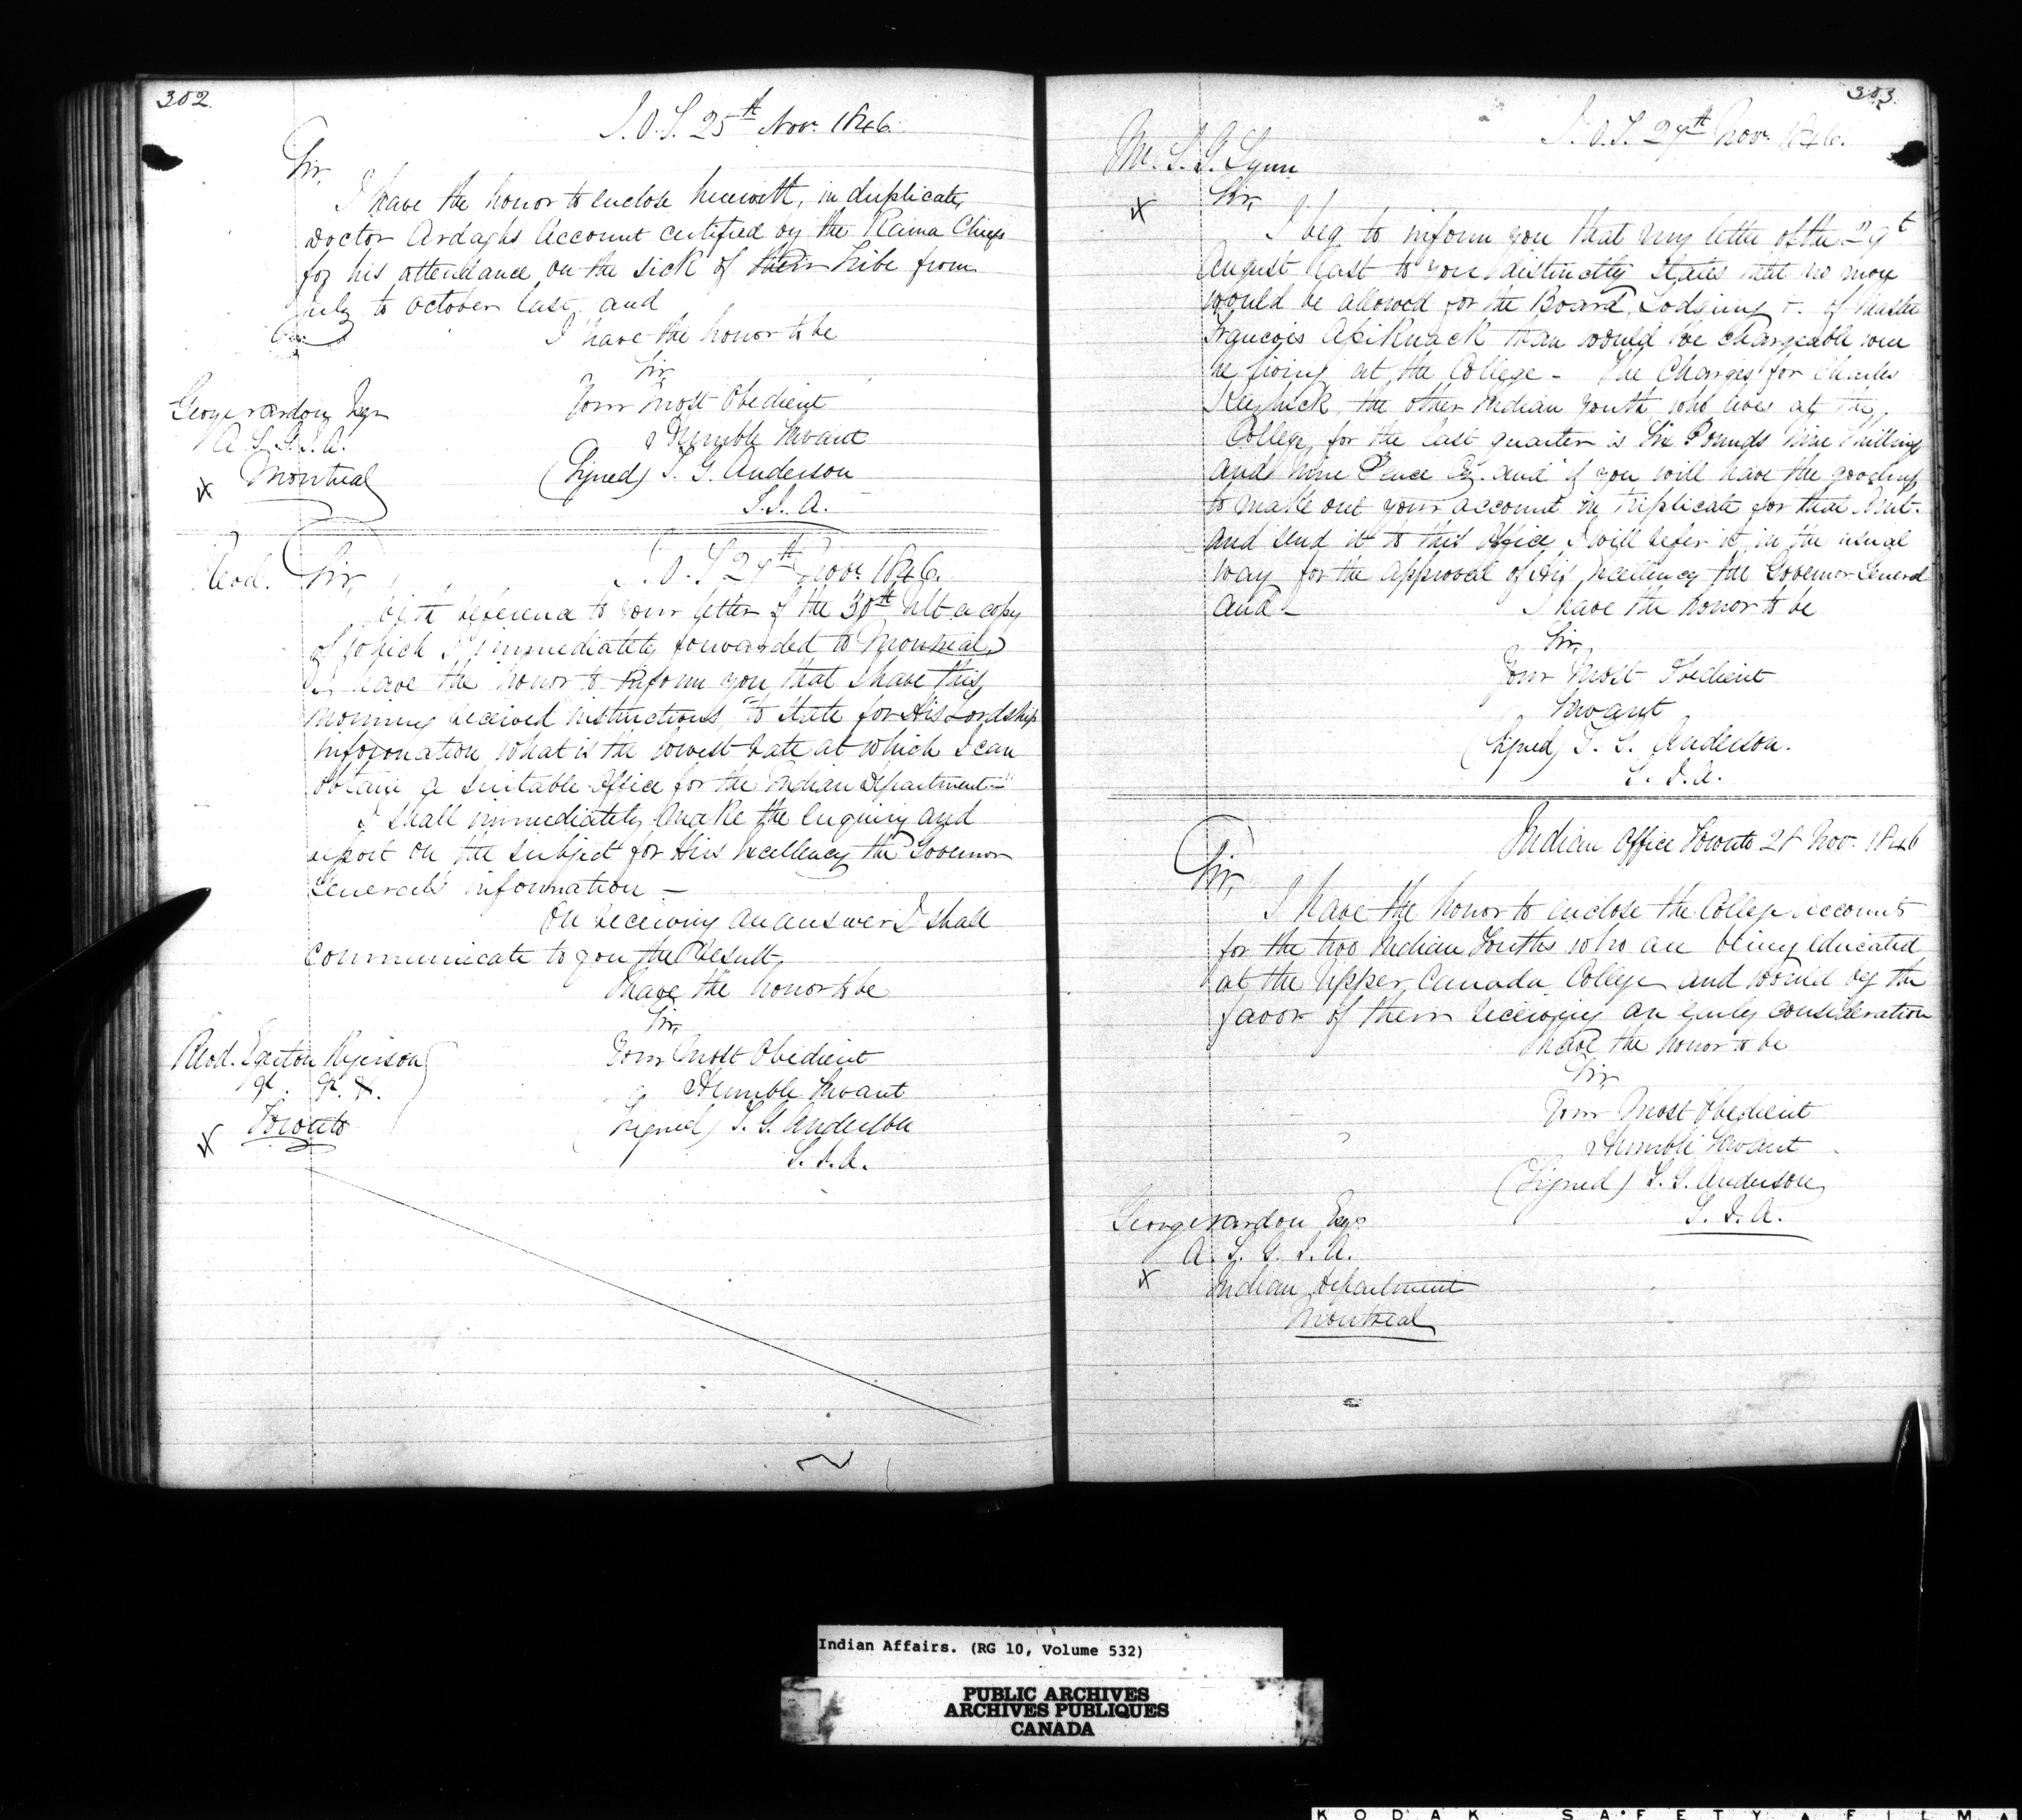 302.
I.O.T. 25th Nov. 1846.
Sir,
I have the honor to enclose herewith, in duplicate,
Doctor Ardaghs Account certified by the Rama Chiefs
for his attendance on the sick of their tribe from
July to October last, and
I have the honor to be
Sir,
Your Most Obedient
Humble Servant
(Signed) T. G. Anderson
S.I.A.
George Vardon Esqr
A S. G. I. A.
Montreal
I.O.T 27th Nov. 1846.
Revd. Sir,
With reference to your letter of the 30th Ult. a copy
of which I immediately forwarded to Montreal,
I have the honor to inform you that I have this
Morning received instructions "to state for His Lordship's
information what is the lowest rate at which I can
obtain a suitable Office for the Indian Department"
I shall immediately make the enquiry and
report on the subject for His Excellency the Governor
General's information —
On receiving an answer I shall
communicate to you the Result,
I have the honor to be
Sir,
Your Most Obedient
Humble Servant
(Signed) T. G. Anderson
S. I. A.
Revd. Egerton Ryerson
Toronto
303.
I.O.T. 27th Nov. 1846.
Mr. S. G. Lynn
Sir,
I beg to inform you that my letter of the 29t
August last to you distinctly states that no more
would be allowed for the Board, Lodging &. of Master
Francois Assiknack than would be chargeable were
he living at the College - The Charges for Charles
Keeshick, the other Indian youth who lives at the
College, for the last quarter is Six Pounds Nine Shillings
and Nine Pence Cy. and if you will have the goodness
to make out your account in triplicate for that Amt.
and send it to this Office I will refer it in the usual
way for the approval of His Excellency the Governor General
and - I have the honor to be
Sir,
Your Most Obedient
Servant
(Signed) T. G. Anderson.
S. I. A.
Indian Office Toronto 28 Nov. 1846
Sir,
I have the honor to enclose the College Accounts
for the two Indian Youths who are being educated
at the Upper Canada College and would beg the
favor of them receiving an early consideration
I have the honor to be
Sir
Your Most Obedient
Humble Servant
(Signed) T. G. Anderson
S. I. A.
George Vardon Esqr
A. S. G. I. A.
Indian Department
Montreal
Indian Affairs. (RG 10, Volume 532)
PUBLIC ARCHIVES
ARCHIVES PUBLIQUES
CANADA
KODAK SAFETY FILM